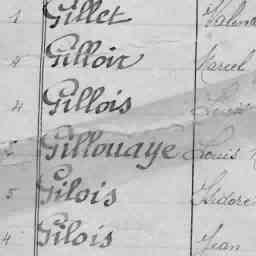 1 Gillet
4 Gilloir Marcel
4 Gillois Louis
Gillouaye Louis
5 Gilois Isidore
4 Gilois Jean